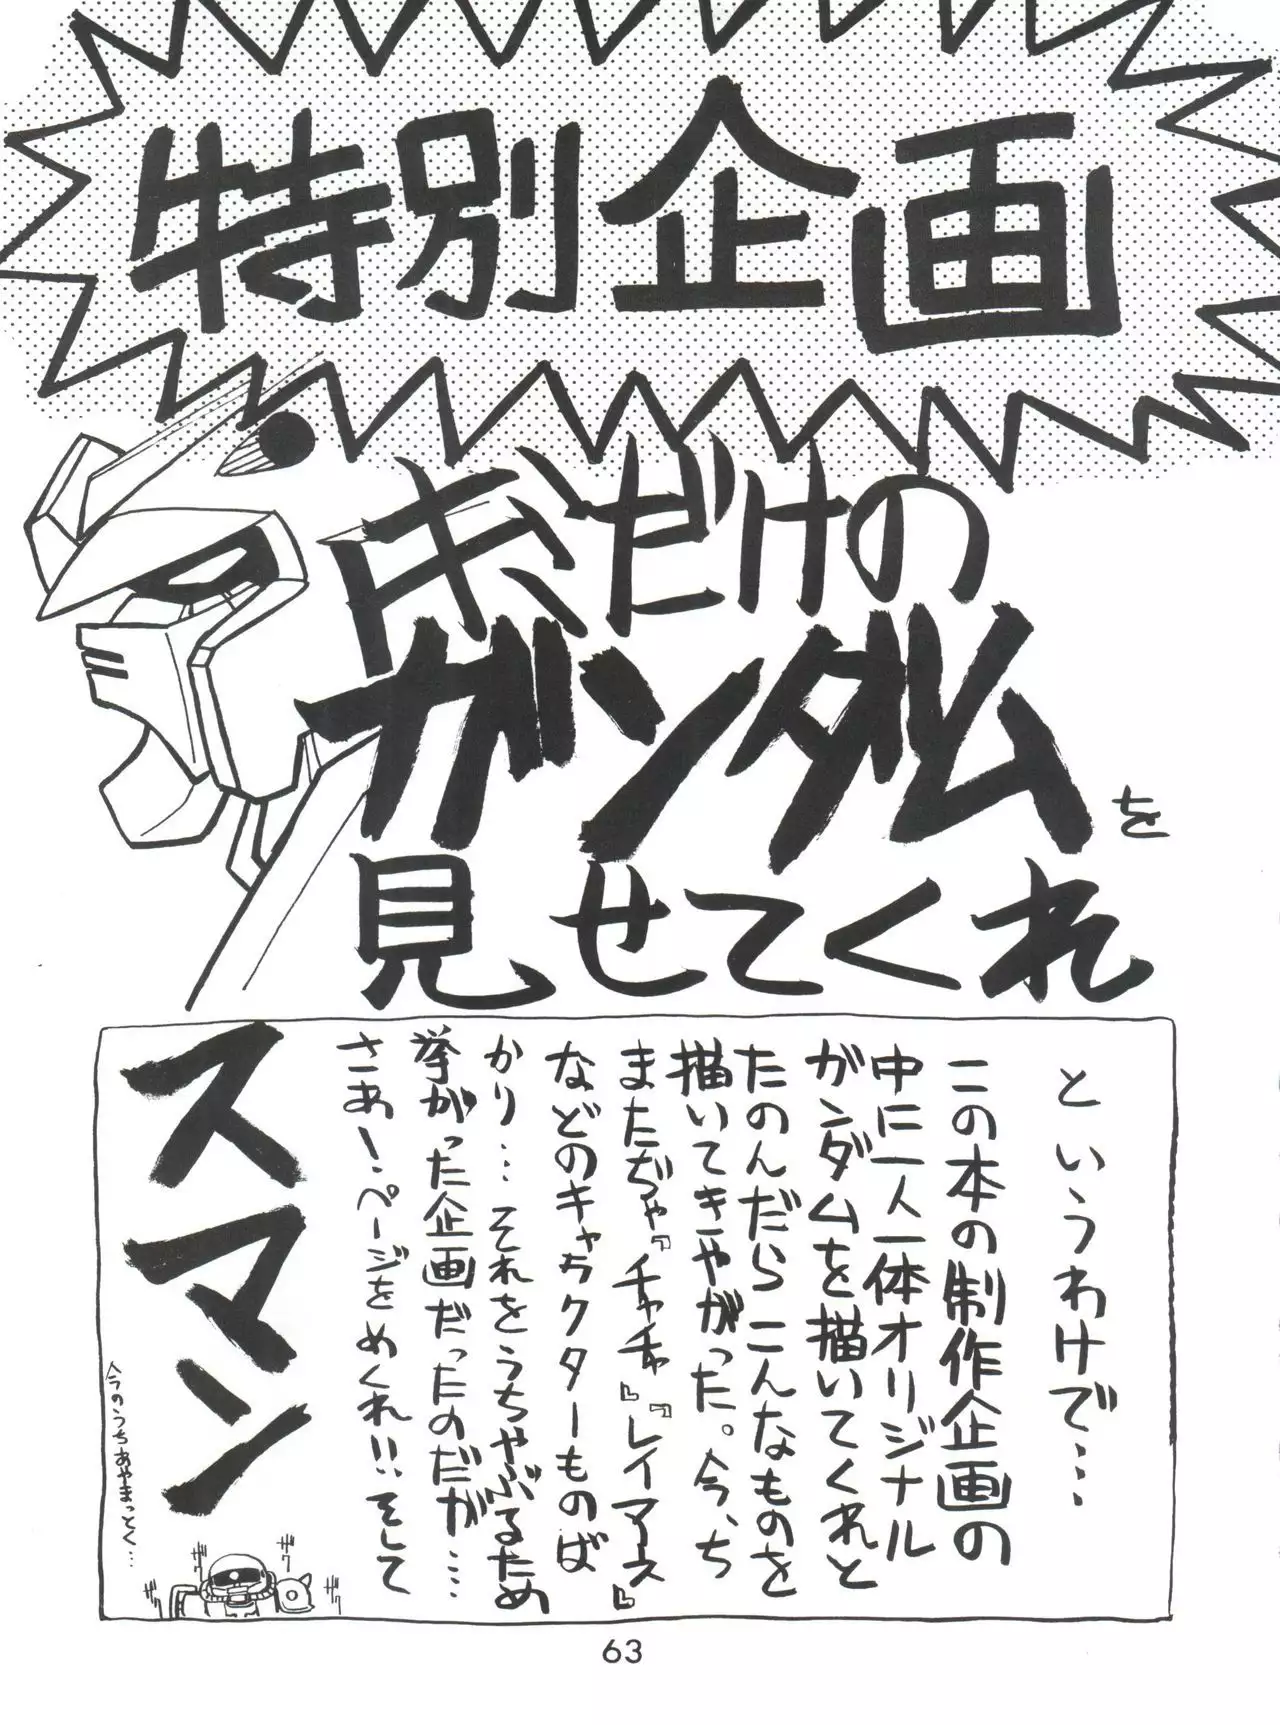 特別企画
ボだけの
ガンダムを
見せてくれ
というわけで…
この本の制作企画の
中に一人一体オリジナル
ガンダムを描いてくれと
たのんだらこんなものを
描いてきやがった。今、ち
まただぢゃ『チャチャ』『レイアース』
などのキャラクターものば
かり…それをうちやぶるため
挙がった企画だったのだが…
さあ!ページをめくれ!!そして
スマン
今のうちあやまっとく…
ザク
ザク
ザク
ザク
63